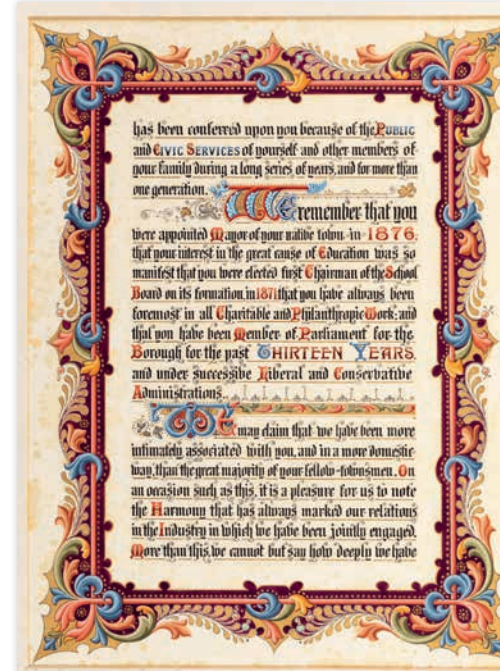 has been conferred upon you because of the PUBLIC
and CIVIC SERVICES of yourself and other members of
your family during a long series of years, and for more than
one generation.
We remember that you
were appointed Mayor of your native town in 1876;
that your interest in the great cause of Education was so
manifest that you were elected first Chairman of the School
Board on its formation in 1871 that you have always been
foremost in all Charitable and Philanthropic Work; and
that you have been Member of Parliament for the
Borough for the past THIRTEEN YEARS,
and under successive Liberal and Conservative
Administrations.
We may claim that we have been more
intimately associated with you, and in a more domestic
way, than the great majority of your fellow-townsmen. On
an occasion such as this, it is a pleasure for us to note
the Harmony that has always marked our relations
in the Industry in which we have been jointly engaged.
More than this, we cannot but say how deeply we have